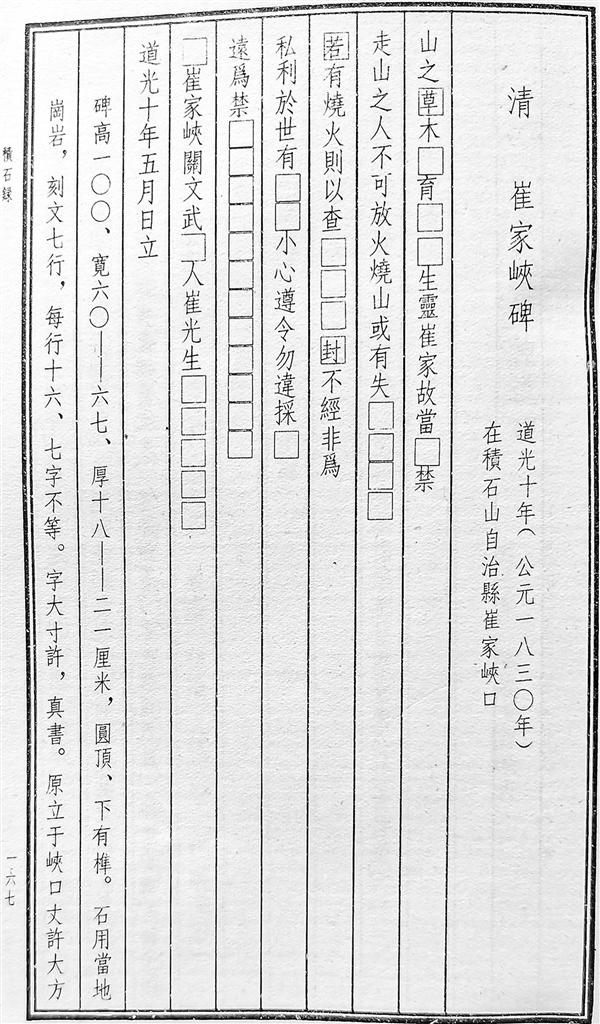 清　崔家峽碑
道光十年（公元一八三〇年）
在積石山自治縣崔家峽口
山之草木□育□□生靈崔家故當□禁
走山之人不可放火燒山或有失□□□□
若有燒火則以查□□□封不經非爲
私利於世有□□小心遵令勿違採□
遠爲禁□□□□□□□□□□□□
□崔家峽關文武□人崔光生□□□□□
道光十年五月日立
碑高一〇〇、寬六〇——六七、厚十八——二一厘米，圓頂、下有榫。石用當地
崗岩，刻文七行，每行十六、七字不等。字大寸許，真書。原立于峽口丈許大方
積石錄
一六七